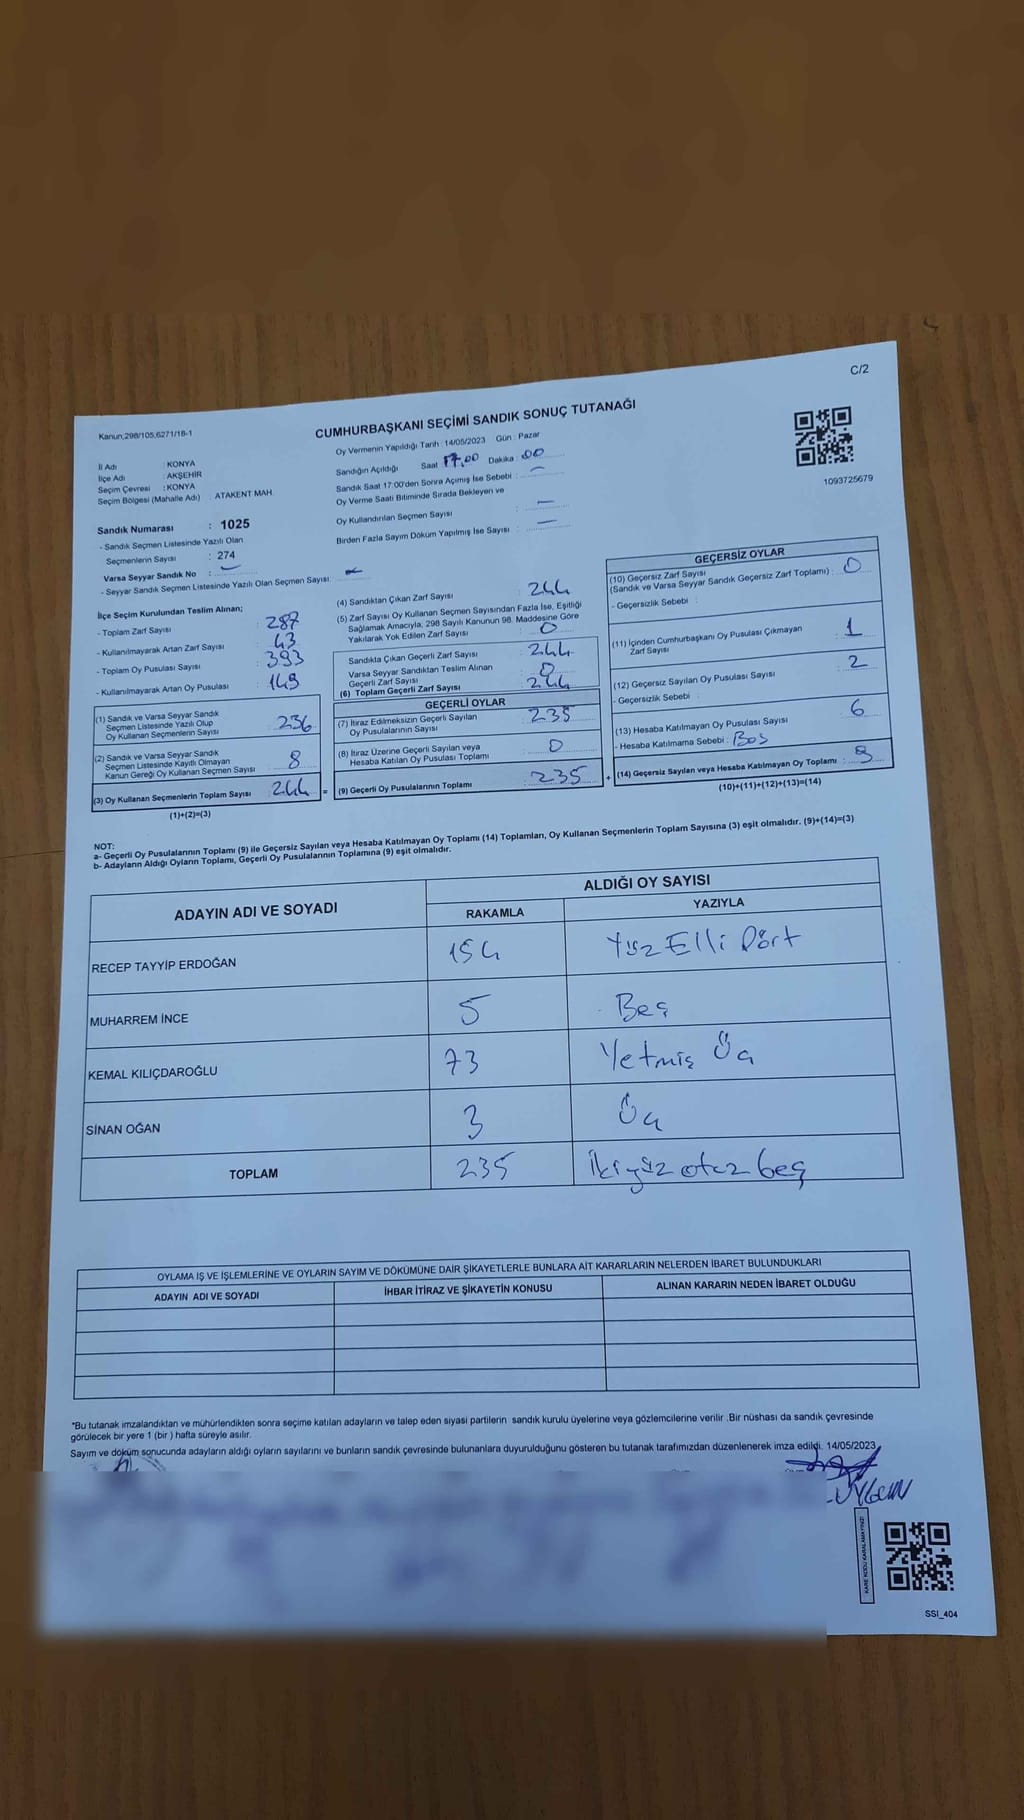 C/2
Kanun,298/105,6271/18-1
CUMHURBAŞKANI SEÇİMİ SANDIK SONUÇ TUTANAĞI
Oy Vermenin Yapıldığı Tarih : 14/05/2023 Gün : Pazar
1093725679
İl Adı : KONYA
İlçe Adı : AKŞEHİR
Seçim Çevresi : KONYA
Seçim Bölgesi (Mahalle Adı) : ATAKENT MAH.
Sandığın Açıldığı Saat 17.00 Dakika : 00
Sandık Saat 17:00'den Sonra Açımış İse Sebebi : —
Oy Verme Saati Bitiminde Sırada Bekleyen ve
Oy Kullandırılan Seçmen Sayısı : —
Birden Fazla Sayım Döküm Yapılmış İse Sayısı : —
Sandık Numarası : 1025
- Sandık Seçmen Listesinde Yazılı Olan
Seçmenlerin Sayısı : 274
Varsa Seyyar Sandık No : —
- Seyyar Sandık Seçmen Listesinde Yazılı Olan Seçmen Sayısı: —
İlçe Seçim Kurulundan Teslim Alınan;
- Toplam Zarf Sayısı : 287
- Kullanılmayarak Artan Zarf Sayısı : 43
- Toplam Oy Pusulası Sayısı : 393
- Kullanılmayarak Artan Oy Pusulası : 149
(1) Sandık ve Varsa Seyyar Sandık
Seçmen Listesinde Yazılı Olup
Oy Kullanan Seçmenlerin Sayısı : 236
(2) Sandık ve Varsa Seyyar Sandık
Seçmen Listesinde Kayıtlı Olmayan
Kanun Gereği Oy Kullanan Seçmen Sayısı : 8
(3) Oy Kullanan Seçmenlerin Toplam Sayısı : 244 =
(1)+(2)=(3)
(4) Sandıktan Çıkan Zarf Sayısı : 244
(5) Zarf Sayısı Oy Kullanan Seçmen Sayısından Fazla İse, Eşitliği
Sağlamak Amacıyla; 298 Sayılı Kanunun 98. Maddesine Göre
Yakılarak Yok Edilen Zarf Sayısı : 0
Sandıkta Çıkan Geçerli Zarf Sayısı : 244
Varsa Seyyar Sandıktan Teslim Alınan
Geçerli Zarf Sayısı : 0
(6) Toplam Geçerli Zarf Sayısı : 244
GEÇERLİ OYLAR
(7) İtiraz Edilmeksizin Geçerli Sayılan
Oy Pusulalarının Sayısı : 235
(8) İtiraz Üzerine Geçerli Sayılan veya
Hesaba Katılan Oy Pusulası Toplamı : 0
(9) Geçerli Oy Pusulalarının Toplamı : 235 +
GEÇERSİZ OYLAR
(10) Geçersiz Zarf Sayısı
(Sandık ve Varsa Seyyar Sandık Geçersiz Zarf Toplamı) : 0
- Geçersizlik Sebebi :
(11) İçinden Cumhurbaşkanı Oy Pusulası Çıkmayan
Zarf Sayısı : 1
(12) Geçersiz Sayılan Oy Pusulası Sayısı : 2
- Geçersizlik Sebebi :
(13) Hesaba Katılmayan Oy Pusulası Sayısı : 6
- Hesaba Katılmama Sebebi : Boş
(14) Geçersiz Sayılan veya Hesaba Katılmayan Oy Toplamı : 9
(10)+(11)+(12)+(13)=(14)
NOT:
a- Geçerli Oy Pusulalarının Toplamı (9) ile Geçersiz Sayılan veya Hesaba Katılmayan Oy Toplamı (14) Toplamları, Oy Kullanan Seçmenlerin Toplam Sayısına (3) eşit olmalıdır. (9)+(14)=(3)
b- Adayların Aldığı Oyların Toplamı, Geçerli Oy Pusulalarının Toplamına (9) eşit olmalıdır.
ADAYIN ADI VE SOYADI ALDIĞI OY SAYISI
RAKAMLA YAZIYLA
RECEP TAYYİP ERDOĞAN 154 Yüz Elli Dört
MUHARREM İNCE 5 Beş
KEMAL KILIÇDAROĞLU 73 Yetmiş Üç
SİNAN OĞAN 3 Üç
TOPLAM 235 İkiyüz otuz beş
OYLAMA İŞ VE İŞLEMLERİNE VE OYLARIN SAYIM VE DÖKÜMÜNE DAİR ŞİKAYETLERLE BUNLARA AİT KARARLARIN NELERDEN İBARET BULUNDUKLARI
ADAYIN ADI VE SOYADI İHBAR İTİRAZ VE ŞİKAYETİN KONUSU ALINAN KARARIN NEDEN İBARET OLDUĞU
*Bu tutanak imzalandıktan ve mühürlendikten sonra seçime katılan adayların ve talep eden siyasi partilerin sandık kurulu üyelerine veya gözlemcilerine verilir .Bir nüshası da sandık çevresinde
görülecek bir yere 1 (bir ) hafta süreyle asılır.
Sayım ve döküm sonucunda adayların aldığı oyların sayılarını ve bunların sandık çevresinde bulunanlara duyurulduğunu gösteren bu tutanak tarafımızdan düzenlenerek imza edildi. 14/05/2023
UYGUN
KARE KODU KARALAMAYINIZ!
SSI_404